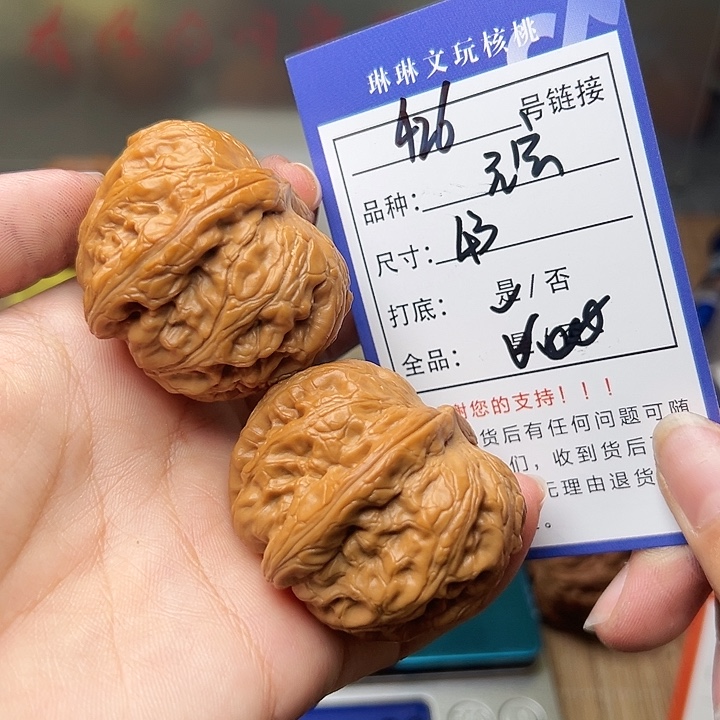 琳琳文玩核桃
426 号链接
品种：元宗
尺寸：43
打底：是/否
全品：
谢您的支持！！！
货后有任何问题可随
们，收到货后
无理由退货